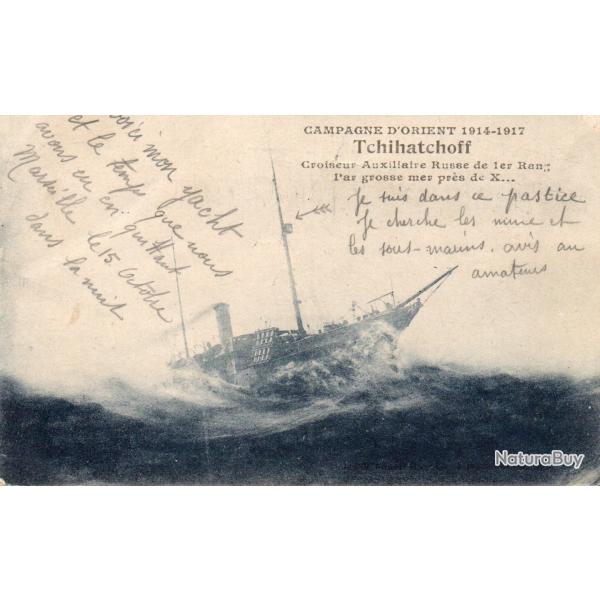 CAMPAGNE D'ORIENT 1914-1917
Tchihatchoff
Croiseur Auxiliaire Russe de 1er Rang
Par grosse mer près de X...
Voici mon yacht
et le temps que nous
avons eu en quittant
Marseille le 15 Octobre
dans la nuit
Je suis dans ce pastice
Je cherche les mine et
les sous-marins. avis au
amateurs
NaturaBuy